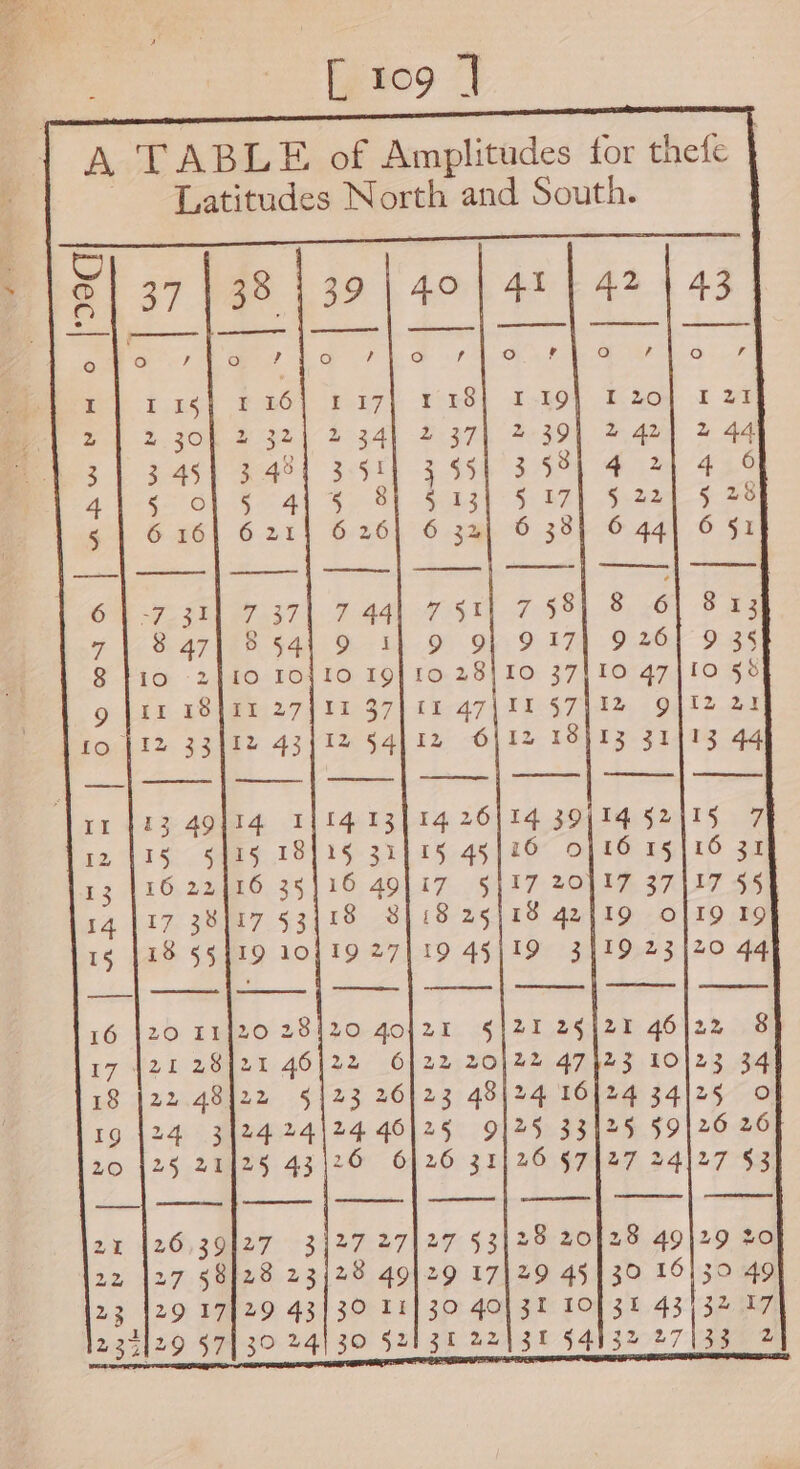 [ 109 ]
A TABLE of Amplitudes for theſe
Latitudes North and South.
Dec. | 37 | 38 | 39 | 40 | 41 | 42 | 43
o | o ′ | o ′ | o ′ | o ′ | o ′ | o ′ | o ′
1 | 1 15 | 1 16 | 1 17 | 1 18 | 1 19 | 1 20 | 1 21
2 | 2 30 | 2 32 | 2 34 | 2 37 | 2 39 | 2 42 | 2 44
3 | 3 45 | 3 48 | 3 51 | 3 55 | 3 58 | 4 2 | 4 6
4 | 5 0 | 5 4 | 5 8 | 5 13 | 5 17 | 5 22 | 5 28
5 | 6 16 | 6 21 | 6 26 | 6 32 | 6 38 | 6 44 | 6 51
6 | 7 31 | 7 37 | 7 44 | 7 51 | 7 58 | 8 6 | 8 13
7 | 8 47 | 8 54 | 9 1 | 9 9 | 9 17 | 9 26 | 9 35
8 | 10 2 | 10 10 | 10 19 | 10 28 | 10 37 | 10 47 | 10 58
9 | 11 18 | 11 27 | 11 37 | 11 47 | 11 57 | 12 9 | 12 21
10 | 12 33 | 12 43 | 12 54 | 12 6 | 12 18 | 13 31 | 13 44
11 | 13 49 | 14 1 | 14 13 | 14 26 | 14 39 | 14 52 | 15 7
12 | 15 5 | 15 18 | 15 31 | 15 45 | 16 0 | 16 15 | 16 31
13 | 16 22 | 16 35 | 16 49 | 17 5 | 17 20 | 17 37 | 17 55
14 | 17 38 | 17 53 | 18 8 | 18 25 | 18 42 | 19 0 | 19 19
15 | 18 55 | 19 10 | 19 27 | 19 45 | 19 3 | 19 23 | 20 44
16 | 20 11 | 20 28 | 20 40 | 21 5 | 21 25 | 21 46 | 22 8
17 | 21 28 | 21 46 | 22 6 | 22 20 | 22 47 | 23 10 | 23 34
18 | 22 48 | 22 5 | 23 26 | 23 48 | 24 16 | 24 34 | 25 0
19 | 24 3 | 24 24 | 24 46 | 25 9 | 25 33 | 25 59 | 26 26
20 | 25 21 | 25 43 | 26 6 | 26 31 | 26 57 | 27 24 | 27 53
21 | 26 39 | 27 3 | 27 27 | 27 53 | 28 20 | 28 49 | 29 20
22 | 27 58 | 28 23 | 28 49 | 29 17 | 29 45 | 30 16 | 30 49
23 | 29 17 | 29 43 | 30 11 | 30 40 | 31 10 | 31 43 | 32 17
23½ | 29 57 | 30 24 | 30 52 | 31 22 | 31 54 | 32 27 | 33 2